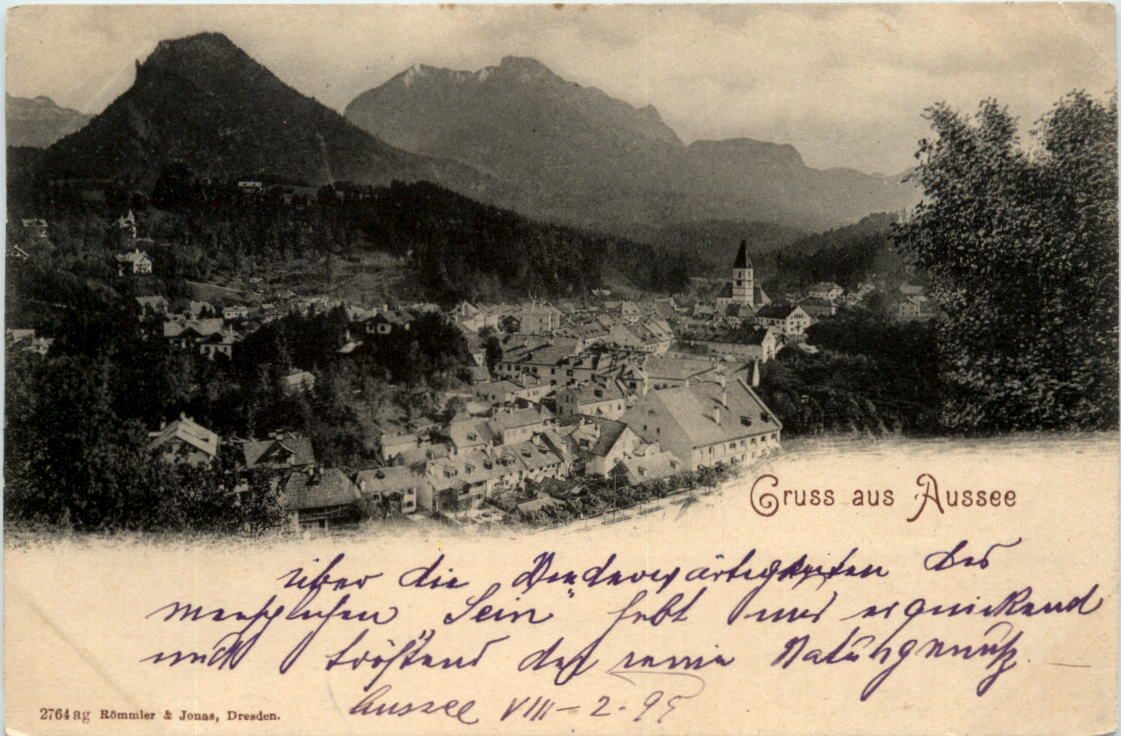 Gruss aus Aussee
über die Wiederwärtigkeiten des
menschlichen „Sein" hebt uns erquickend
und tröstend der reine Naturgenuß.
Aussee VIII - 2.
2764 ag Römmler & Jonas, Dresden.